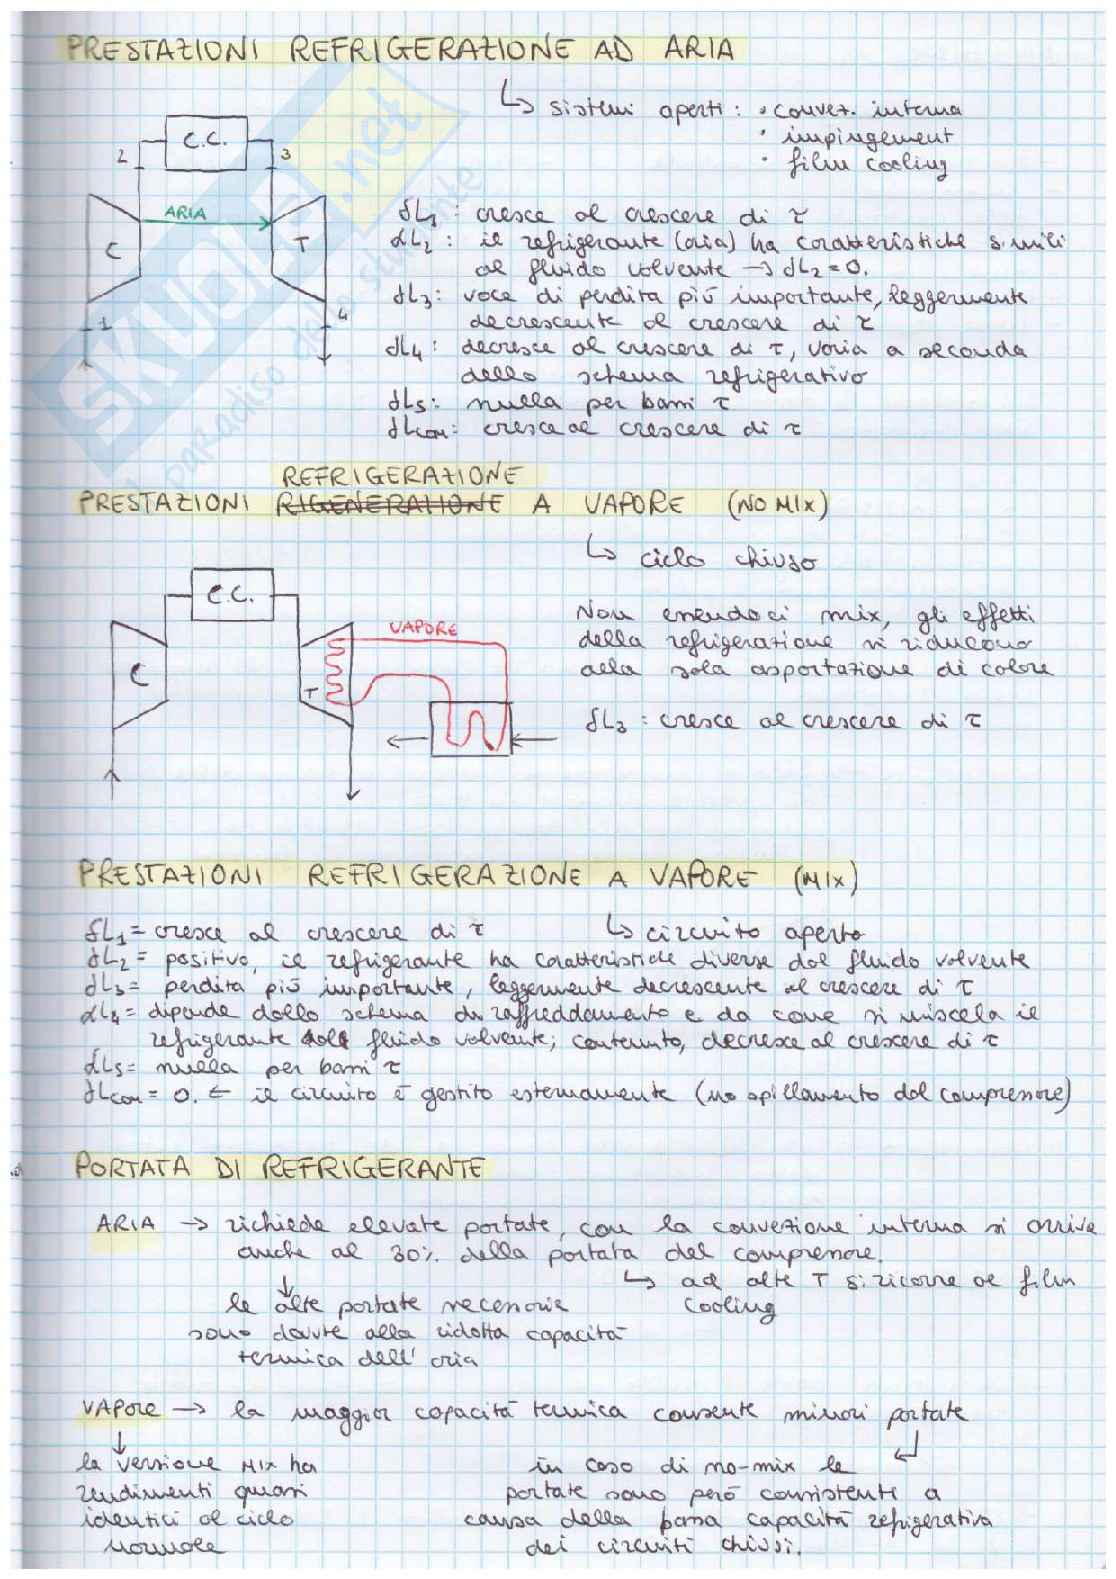 PRESTAZIONI REFRIGERAZIONE AD ARIA
↳ sistemi aperti: • convez. interna
• impingement
• film cooling
C.C.
2
3
ARIA
C
T
1
4
δL1: cresce al crescere di τ
δL2: il refrigerante (aria) ha caratteristiche simili
al fluido volvente → δL2=0.
δL3: voce di perdita più importante, leggermente
decrescente al crescere di τ
δL4: decresce al crescere di τ, varia a seconda
dello schema refrigerativo
δL5: nulla per bassi τ
δLcom: cresce al crescere di τ
REFRIGERAZIONE
PRESTAZIONI RIGENERATIONE A VAPORE (NO MIX)
↳ ciclo chiuso
C.C.
VAPORE
C
T
Non essendoci mix, gli effetti
della refrigerazione si riducono
alla sola asportazione di calore
δL3: cresce al crescere di τ
PRESTAZIONI REFRIGERAZIONE A VAPORE (MIX)
δL1= cresce al crescere di τ ↳ circuito aperto
δL2= positivo, il refrigerante ha caratteristiche diverse dal fluido volvente
δL3= perdita più importante, leggermente decrescente al crescere di τ
δL4= dipende dallo schema di raffreddamento e da come si miscela il
refrigerante fluido volvente; comunque, decresce al crescere di τ
δL5= nulla per bassi τ
δLcom= 0. ← il circuito è gestito esternamente (no spillamento dal compressore)
PORTATA DI REFRIGERANTE
ARIA → richiede elevate portate, con la convezione interna si arriva
anche al 30% della portata del compressore.
↳ ad alte T si ricorre al film
cooling
↓
le alte portate necessarie
sono dovute alla ridotta capacità
termica dell'aria
VAPORE → la maggior capacità termica consente minori portate
↓
la versione MIX ha
rendimenti quasi
identici al ciclo
normale
↵
in caso di no-mix le
portate sono però consistenti a
causa della bassa capacità refrigerativa
dei circuiti chiusi.
SKUOLA.net
il paradiso dello studente